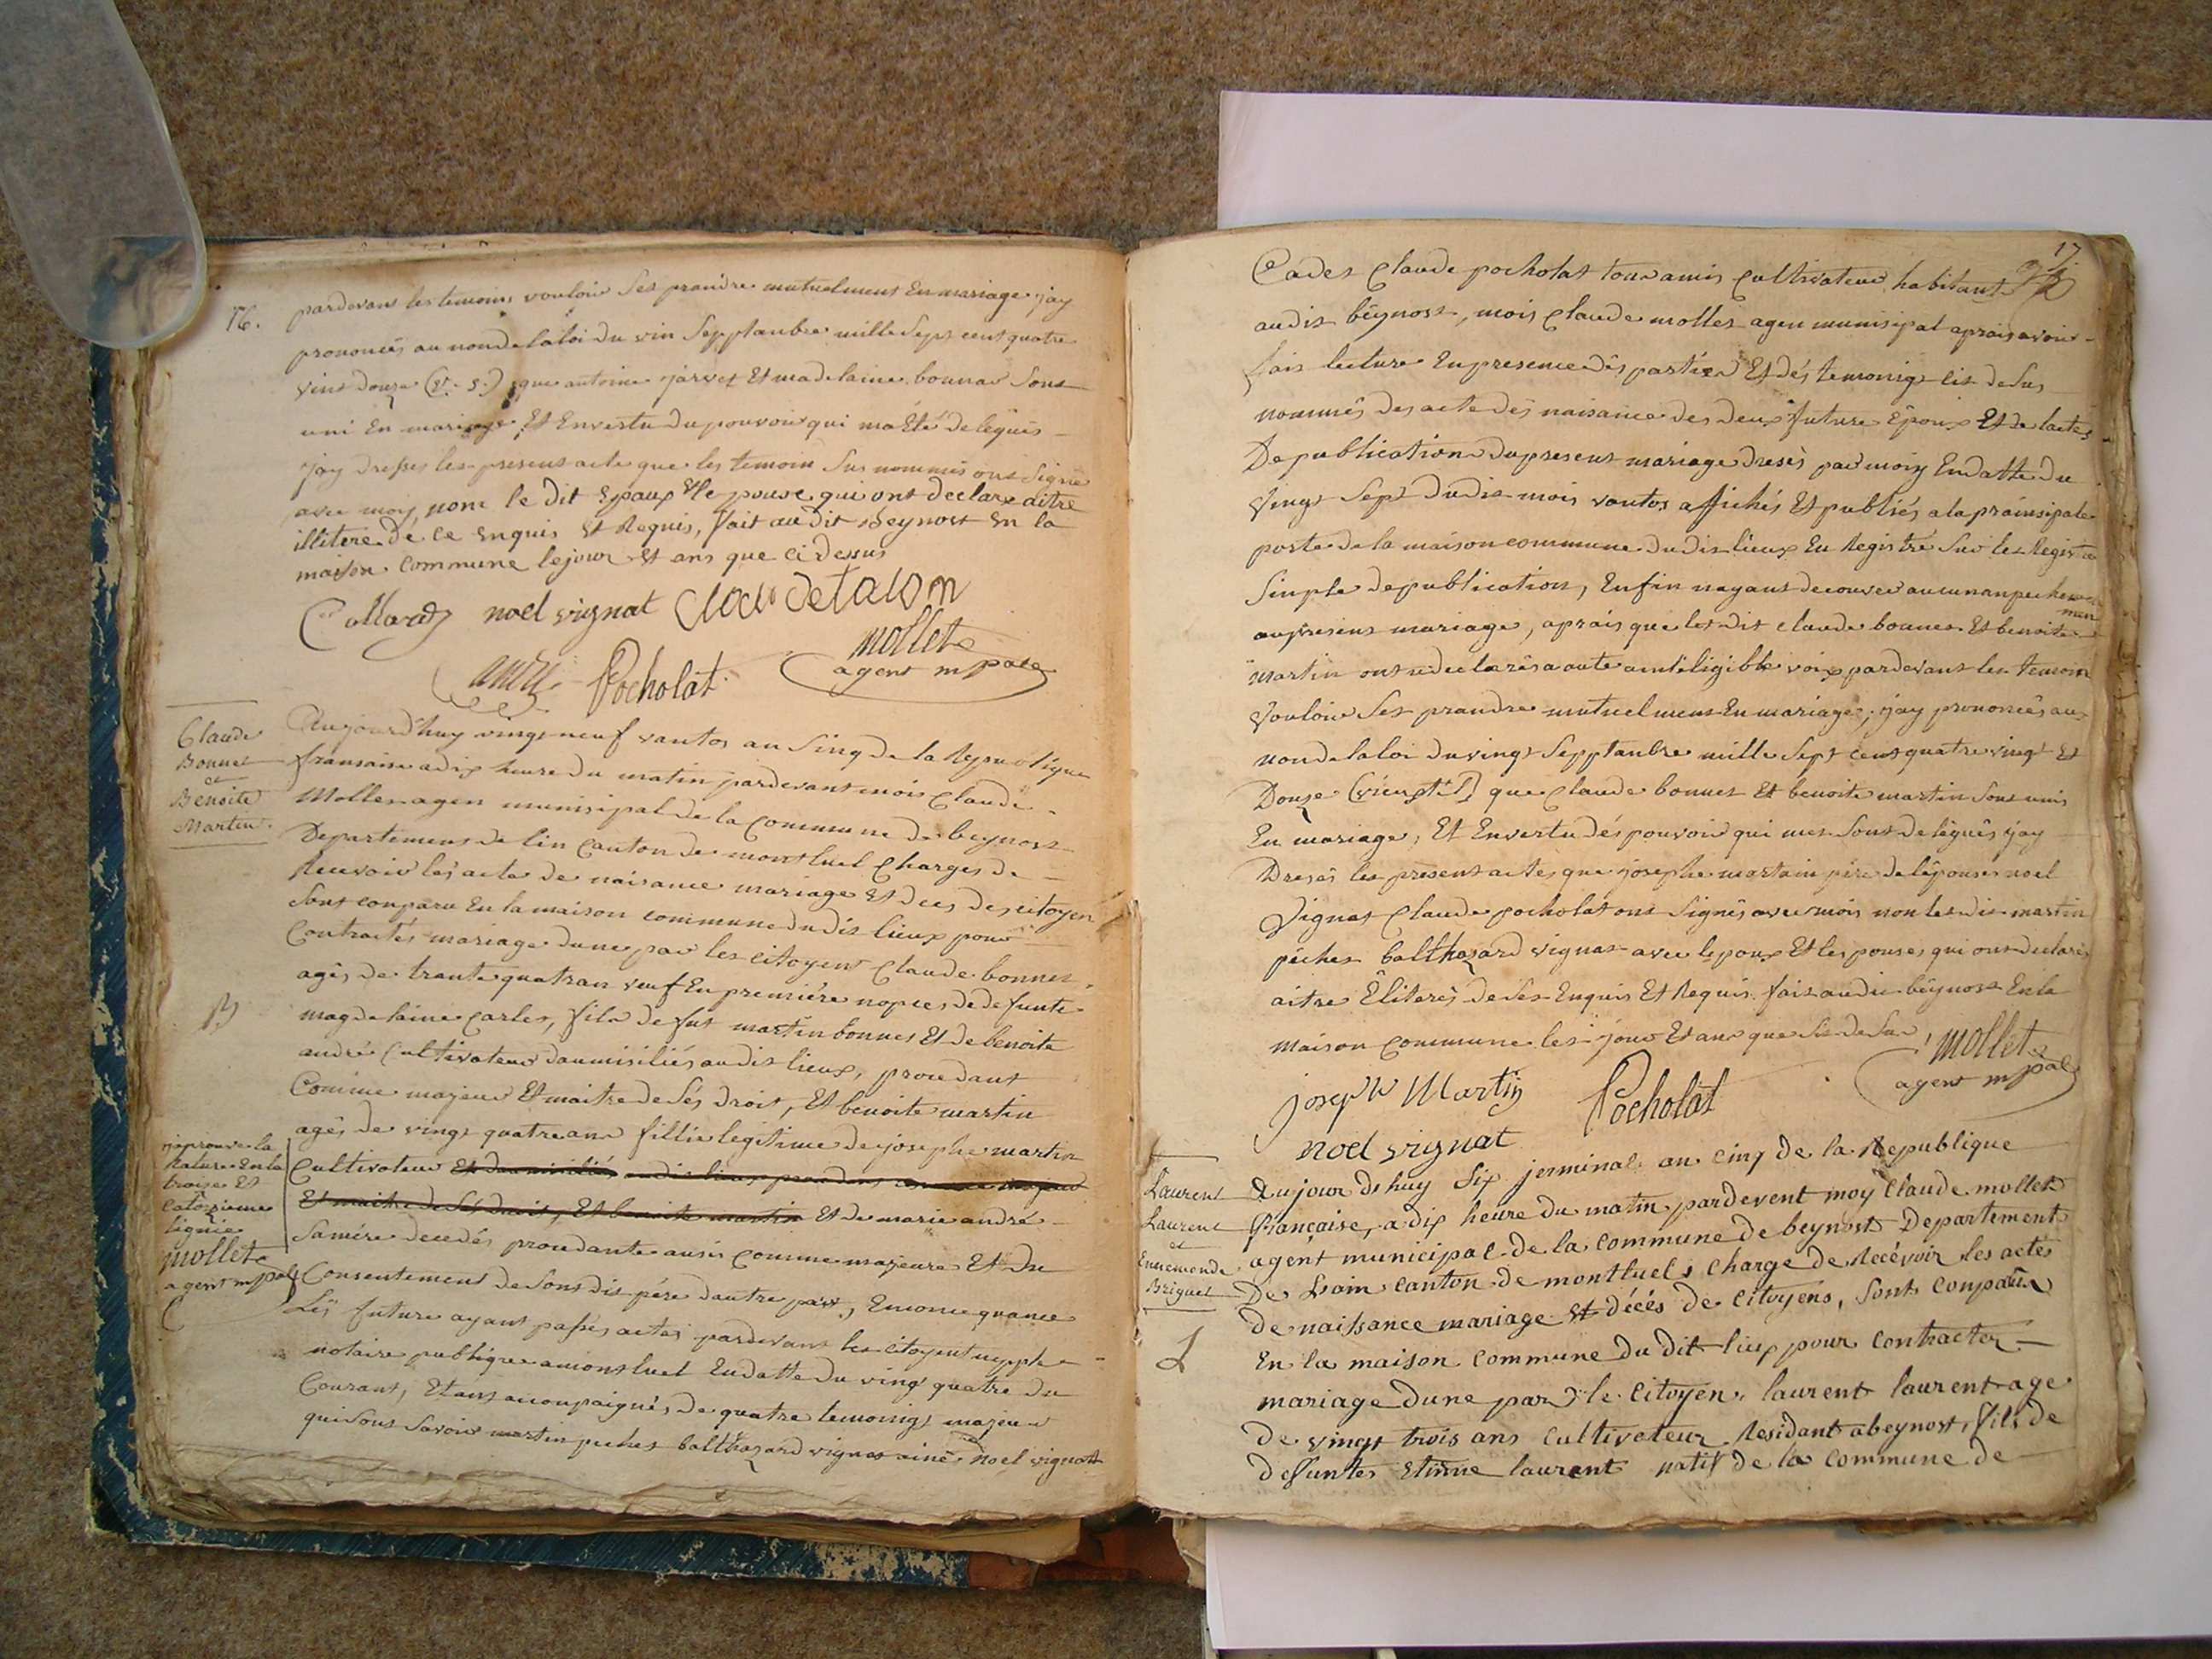 16.
pardevant les temoins vouloir Ses praindre mutuelment En mariage, jay
prononcés au nom de la loi du vin Septtanbre mille Sept cent quatre
vint douze (v. s.) que antoine jarvet Et madelaine bonnar Sont
uni En mariage, Et En vertu du pouvoir qui ma Eté deleguès
jay dresses les presens acte que les temoin Sus nommés ont Signé
avec moy, nom le dit Epoux Et le pouse qui ont declare aitre
illitere de ce Enquis Et Requis, fait au dit Beynost En la
maison Commune le jour Et ans que ci dessus
Collard noel vignat
mollet
Pocholat agent mpale
Claude
Bonnet
et
Benoite
Martin
Aujourd'huy vingt neuf vantos an Sinq de la Republique
fransaise a dix heure du matin pardevant mois Claude
Mollet agen munisipal de la Commune de beynost
Departement de lin Canton de montluel Charges de
Recevoir les acte de naisance mariage Et deces des citoyen
Sont conparu En la maison commune du dit lieux pour
Contractés mariage dune par les citoyent Claude bonnet
agés de trante quatran veuf En première nopces de defunte
magdelaine Carles, fils de fut martin bonnet Et de benoite
andré Cultivateur daumisiliés audit lieux, proudant
Comme majeur Et maitre de Sés droit, Et benoite martin
agés de vingt quatre ans fillie legitime de josephe martin
Cultivateur Et daumisiliés audit lieux proudant comme majeur
Et maitre de Sés droit, Et benoite martin Et de marie andré
Samére decedés proudante ausis comme majeure Et du
Consentement de Sont dit pére dautre part, Enconsequance
Les future ayant passés actes pardevant les citoyent
notaire publique amontluel En datte du ving quatre du
Courant, Etant acconpaignés de quatre temoings majeur
qui Sont Savoir martin peches balthazard vignat ainé, noel vignat
japrouve la
Rature En la
traize Et
catorzieme
lignie
mollet
agent mpal
17
Cadet Claude pocholat tous amis Cultivateur habitant
audit bèynost, mois Claude mollet agen munisipal aprais avoir
fais lecture En presence des partiés Et dés temonigt cit desus
nommés des acte dés naisance des deux future Epoux Et de lactes
De publication du present mariage dresès par moiy En datte du
Vingt Sept du dit mois vantos affichés Et publiés a la prainsipale
porte de la maison commune du dit lieux En Registré Sur les Registre
Simple de publication, Enfin nayant decouver aucun anpeche
man
au present mariage, aprais que les dit claude bonnet Et benoite
martin ont declarés a aute anteligible voix pardevant les temoin
Vouloir Ses prandre mutuelment En mariage, jay prononcés au
nom de la loi du vingt Septtanbre mille Sept cent quatre vingt Et
Douze (vieux stil) que Claude bonnet Et benoite martin Sont unis
En mariage, Et En vertu dés pouvoir qui mes Sont delégués jay
Dresés les present actes que josephe martain père de lépouses noel
Vignat Claude pocholat ont Signés avec mois non les dit martin
pèches balthazard vignat avec lepoux Et les pouses qui ont declarés
aitre Êliterés de Ses Enquis Et Requis. fait audit bêynost En la
maison commune les jour Et ans que Si desu
mollet
joseph Martin Pocholat agent mpal
noel vignat
Laurent
Laurent
et
Ennemonde
Briguet
Aujourdhuy Six jerminal an cinq de la Republique
française, a dix heure du matin pardevent moy Claude mollet
agent municipal de la commune de beynost Departement
De Lain canton de montluel, charge de Recévoir les actes
de naissance mariage Et décés de citoyens, Sont conparu
En la maison commune du dit lieux pour contracter
mariage dune par le citoyen laurent laurent age
de vingt trois ans cultivateur Residant abeynost, fils de
defunter Etinne laurent natif de la commune de